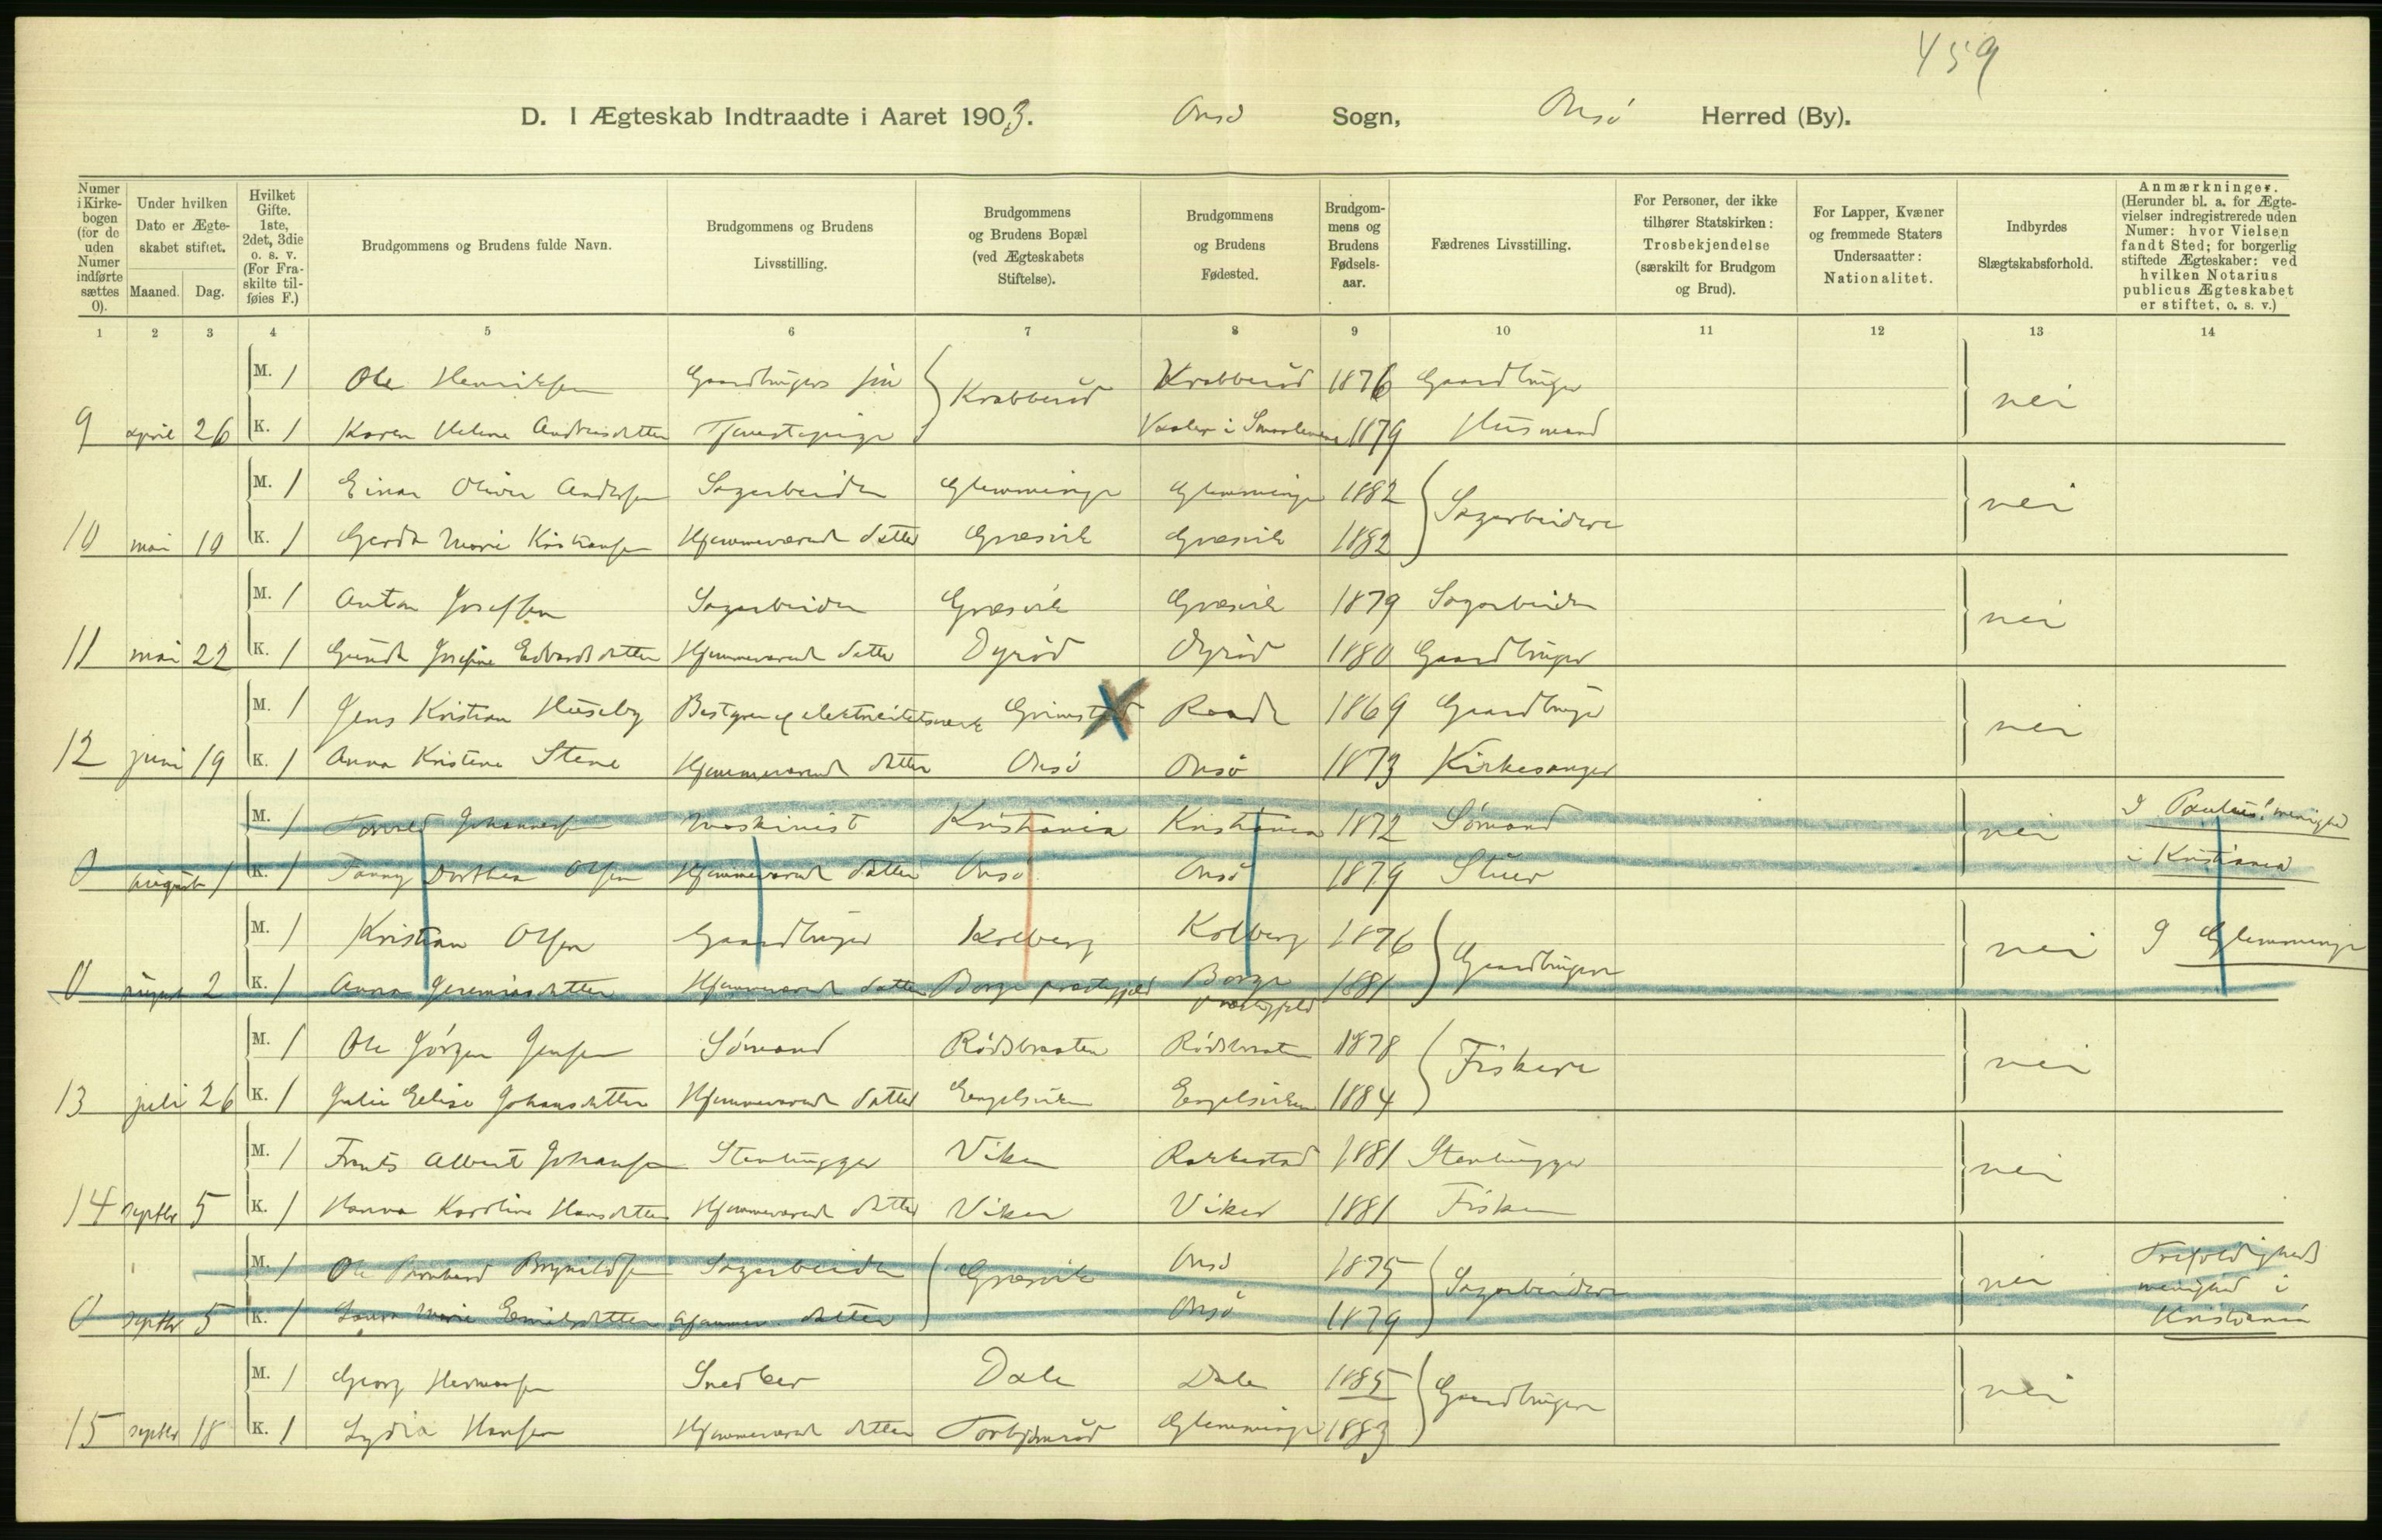 459
D. I Ægteskab Indtraadte i Aaret 1903. Onsø Sogn, Onsø Herred (By).
Numer i Kirkebogen (for de uden Numer indførte sættes 0).
Under hvilken Dato er Ægteskabet stiftet.
Maaned. Dag.
Hvilket Gifte. 1ste, 2det, 3die o. s. v. (For Fraskilte tilføies F.)
Brudgommens og Brudens fulde Navn.
Brudgommens og Brudens Livsstilling.
Brudgommens og Brudens Bopæl (ved Ægteskabets Stiftelse).
Brudgommens og Brudens Fødested.
Brudgommens og Brudens Fødselsaar.
Fædrenes Livsstilling.
For Personer, der ikke tilhører Statskirken: Trosbekjendelse (særskilt for Brudgom og Brud).
For Lapper, Kvæner og fremmede Staters Undersaatter: Nationalitet.
Indbyrdes Slægtskabsforhold.
Anmærkninger. (Herunder bl. a. for Ægtevielser indregistrerede uden Numer: hvor Vielsen fandt Sted; for borgerlig stiftede Ægteskaber: ved hvilken Notarius publicus Ægteskabet er stiftet, o. s. v.)
1 2 3 4 5 6 7 8 9 10 11 12 13 14
M. 1 Ole Henriksen Gaardbrugers søn Krabberød Krabberød 1876 Gaardbruger nei
9 april 26 K. 1 Karen Helene Andreasdatter Tjenestepige Vaaler i Smaalenene 1879 Husmand
M. 1 Einar Oliver Andersen Sagarbeider Glemminge Glemminge 1882 Sagarbeidere nei
10 mai 10 K. 1 Gerda Marie Kristiansen Hjemmeværende datter Græsvik Græsvik 1882
M. 1 Anton Josefsen Sagarbeider Græsvik Græsvik 1879 Sagarbeider nei
11 mai 22 K. 1 Gunda Josefine Edvardsdatter Hjemmeværende datter Dyrød Dyrød 1880 Gaardbruger
M. 1 Jens Kristian Huseby Bestyrer af elektricitetsverk Grimstad Raade 1869 Gaardbruger nei
12 juni 19 K. 1 Anna Kristine Stene Hjemmeværende datter Onsø Onsø 1873 Kirkesanger
M. 1 Johannesen Maskinist Kristiania Kristiania 1872 Sømand nei I Paulus' menighed
0 august 1 K. 1 Fanny Dorthea Olsen Hjemmeværende datter Onsø Onsø 1879 i Kristiania
M. 1 Kristian Olsen Gaardbruger Kolberg Kolberg 1876 Gaardbrugere nei I Glemminge
0 august 2 K. 1 Anna Jeremiasdatter Hjemmeværende datter Borge prestegjeld Borge prestegjeld 1881
M. 1 Ole Jørgen Jensen Sømand Rødsbraaten Rødsbraaten 1878 Fiskere nei
13 juli 26 K. 1 Julie Elise Johansdatter Hjemmeværende datter Engelsviken Engelsviken 1884
M. 1 Frants Albert Johansen Stenhugger Viker Rakkestad 1881 Stenhugger nei
14 septbr 5 K. 1 Hanna Karoline Hansdatter Hjemmeværende datter Viker Viker 1881 Fisker
M. 1 Ole Bernhard Brynildsen Sagarbeider Græsvik Onsø 1875 Sagarbeidere nei Trefoldigheds
0 septbr 5 K. 1 Laura Marie Emilsdatter Hjemmev. datter Onsø 1879 menighed i
Kristiania
M. 1 Georg Hermansen Snedker Dale Dale 1885 Gaardbrugere nei
15 septbr 18 K. 1 Lydia Hansen Hjemmeværende datter Torbjørnrød Glemminge 1883